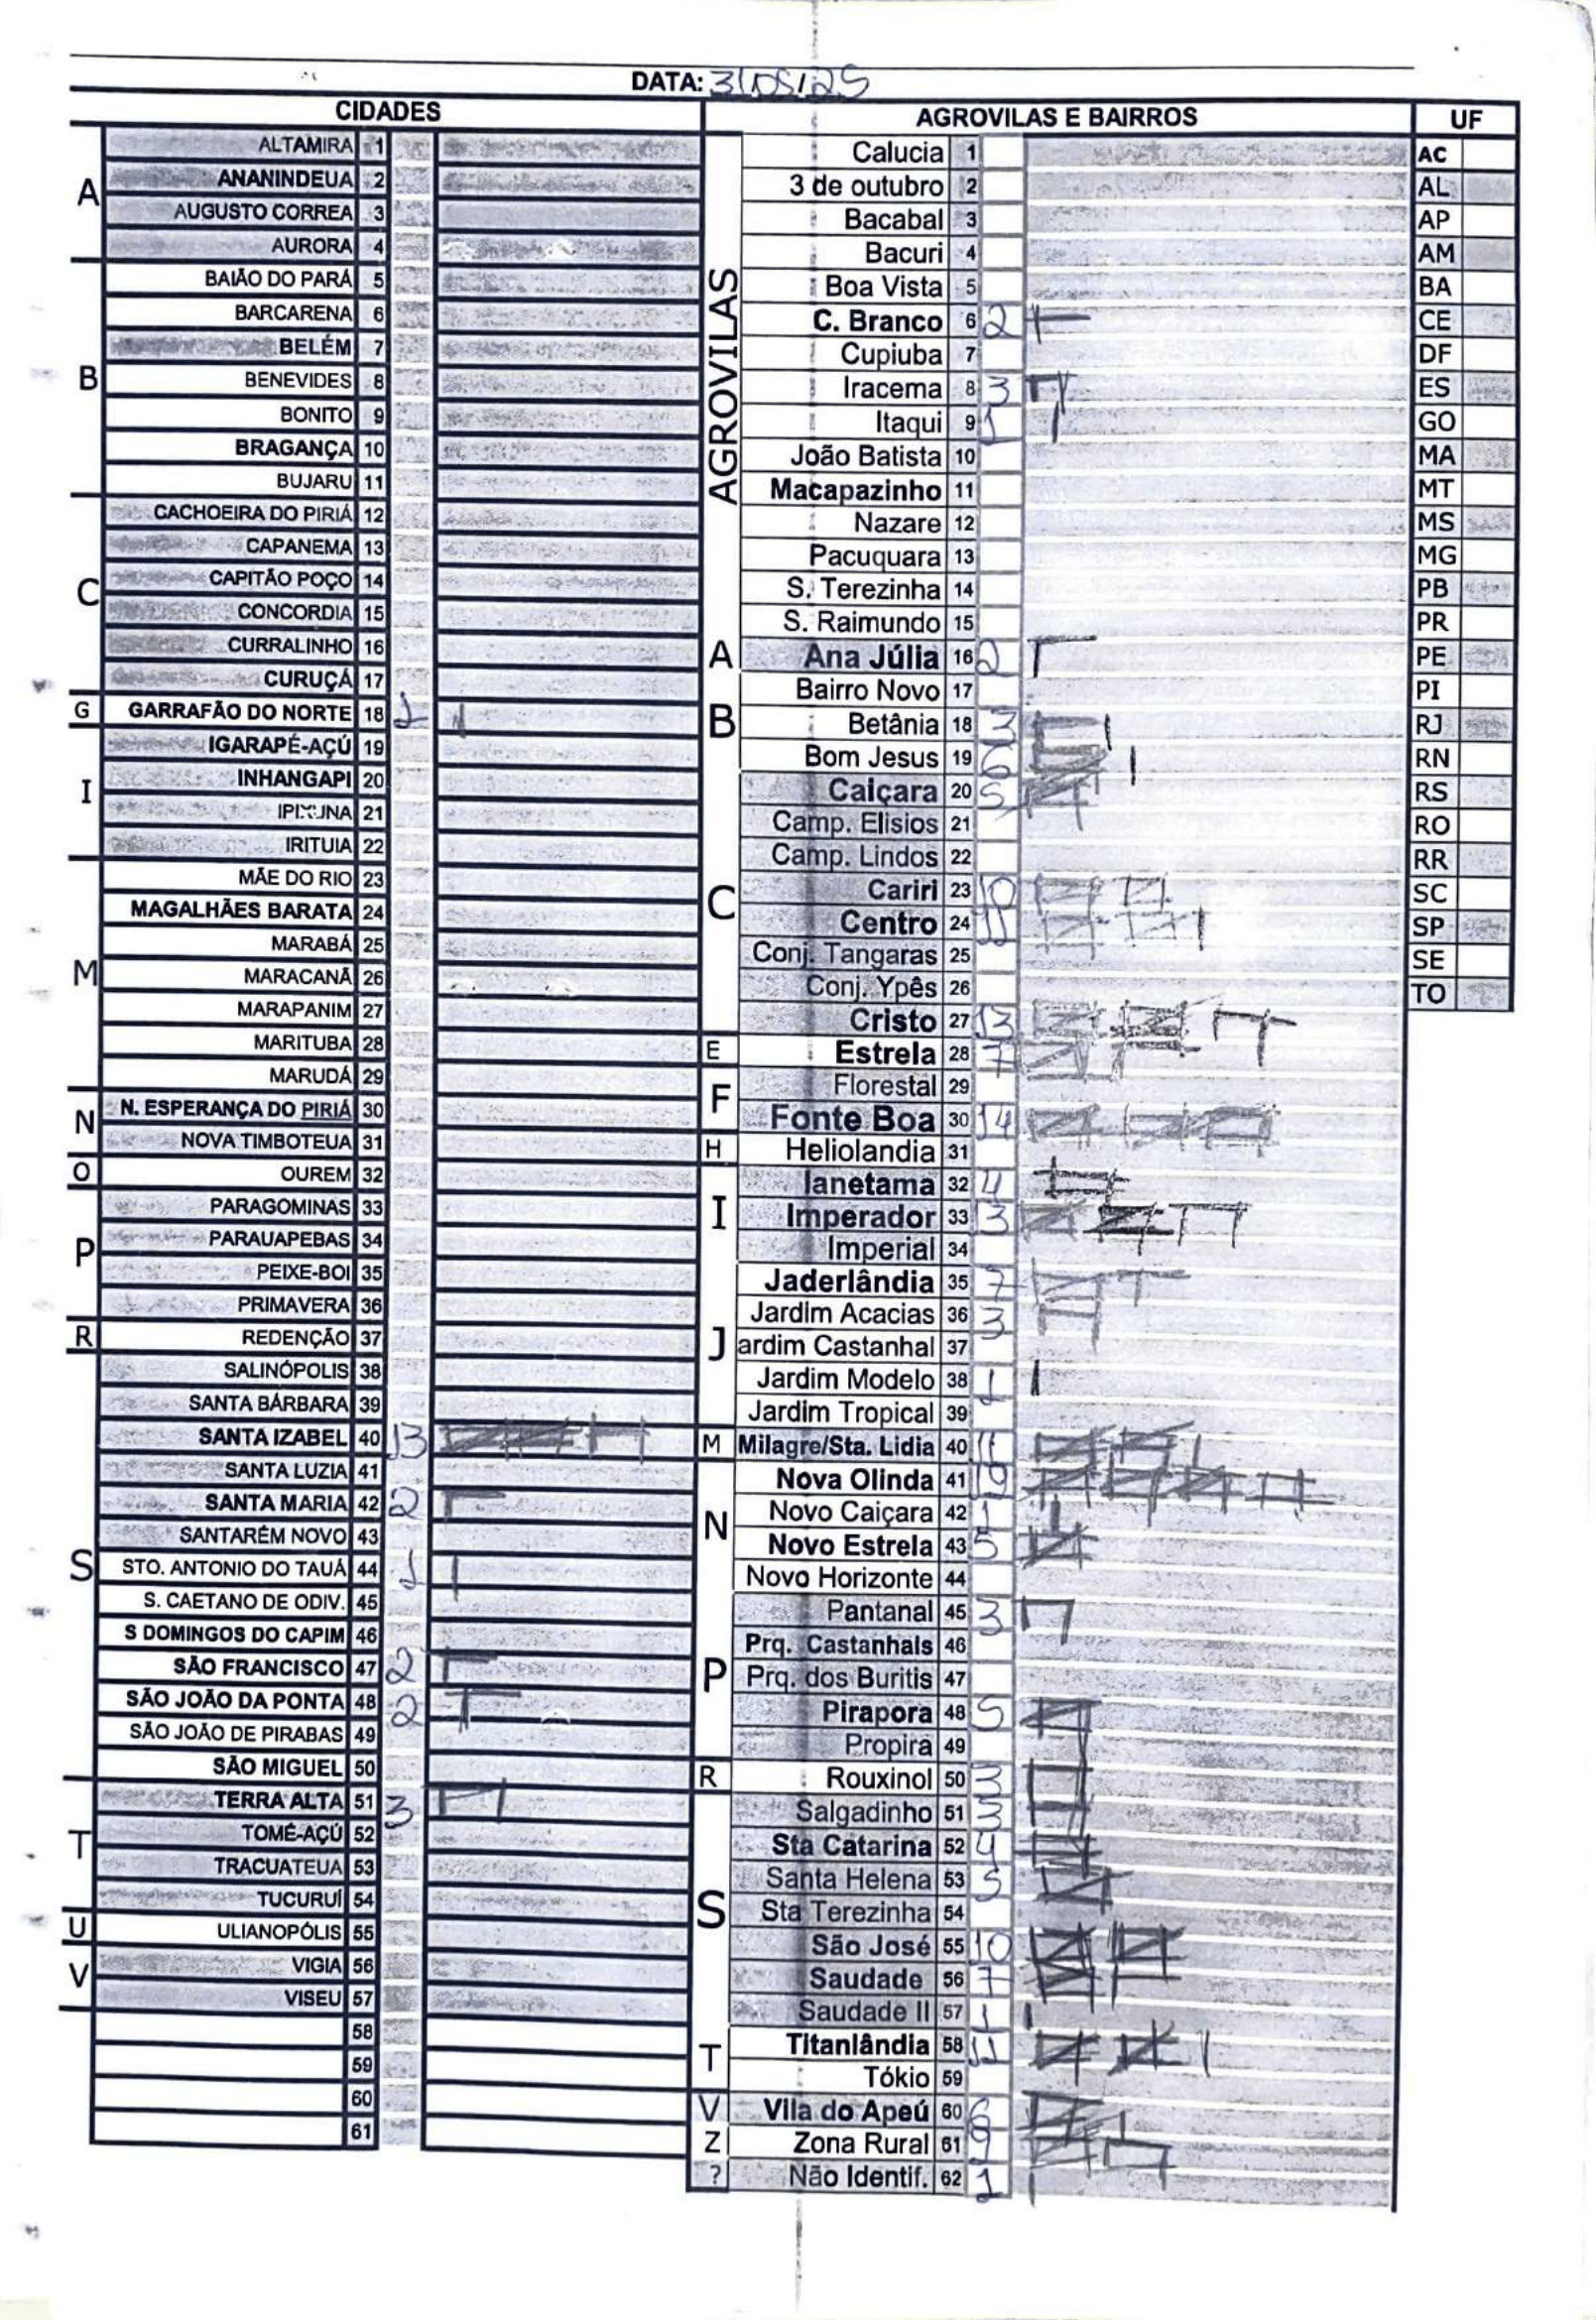 DATA: 31/05/25
CIDADES
A
ALTAMIRA 1
ANANINDEUA 2
AUGUSTO CORREA 3
AURORA 4
B
BAIÃO DO PARÁ 5
BARCARENA 6
BELÉM 7
BENEVIDES 8
BONITO 9
BRAGANÇA 10
BUJARU 11
C
CACHOEIRA DO PIRIÁ 12
CAPANEMA 13
CAPITÃO POÇO 14
CONCORDIA 15
CURRALINHO 16
CURUÇÁ 17
G
GARRAFÃO DO NORTE 18 1
I
IGARAPÉ-AÇÚ 19
INHANGAPI 20
IPIXUNA 21
IRITUIA 22
M
MÃE DO RIO 23
MAGALHÃES BARATA 24
MARABÁ 25
MARACANÃ 26
MARAPANIM 27
MARITUBA 28
MARUDÁ 29
N
N. ESPERANÇA DO PIRIÁ 30
NOVA TIMBOTEUA 31
O
OUREM 32
P
PARAGOMINAS 33
PARAUAPEBAS 34
PEIXE-BOI 35
PRIMAVERA 36
R
REDENÇÃO 37
S
SALINÓPOLIS 38
SANTA BÁRBARA 39
SANTA IZABEL 40 13
SANTA LUZIA 41
SANTA MARIA 42 2
SANTARÉM NOVO 43
STO. ANTONIO DO TAUÁ 44 1
S. CAETANO DE ODIV. 45
S DOMINGOS DO CAPIM 46
SÃO FRANCISCO 47 2
SÃO JOÃO DA PONTA 48 2
SÃO JOÃO DE PIRABAS 49
SÃO MIGUEL 50
T
TERRA ALTA 51 3
TOMÉ-AÇÚ 52
TRACUATEUA 53
TUCURUÍ 54
U
ULIANOPÓLIS 55
V
VIGIA 56
VISEU 57
58
59
60
61
AGROVILAS E BAIRROS
AGROVILAS
Calucia 1
3 de outubro 2
Bacabal 3
Bacuri 4
Boa Vista 5
C. Branco 6 2
Cupiuba 7
Iracema 8 3
Itaqui 9 1
João Batista 10
Macapazinho 11
Nazare 12
Pacuquara 13
S. Terezinha 14
S. Raimundo 15
A
Ana Júlia 16 2
B
Bairro Novo 17
Betânia 18 3
Bom Jesus 19 6
C
Caiçara 20 5
Camp. Elisios 21
Camp. Lindos 22
Cariri 23 10
Centro 24 11
Conj. Tangaras 25
Conj. Ypês 26
Cristo 27 13
E
Estrela 28 7
F
Florestal 29
Fonte Boa 30 14
H
Heliolandia 31
I
Ianetama 32 4
Imperador 33 13
Imperial 34
J
Jaderlândia 35 7
Jardim Acacias 36 3
ardim Castanhal 37
Jardim Modelo 38 1
Jardim Tropical 39
M
Milagre/Sta. Lidia 40 11
N
Nova Olinda 41 19
Novo Caiçara 42 1
Novo Estrela 43 5
Novo Horizonte 44
P
Pantanal 45 3
Prq. Castanhais 46
Prq. dos Buritis 47
Pirapora 48 5
Propira 49
R
Rouxinol 50 3
S
Salgadinho 51 3
Sta Catarina 52 4
Santa Helena 53 5
Sta Terezinha 54
São José 55 10
Saudade 56 7
Saudade II 57 1
T
Titanlândia 58 11
Tókio 59
V
Vila do Apeú 60 6
Z
Zona Rural 61 9
?
Não Identif. 62 1
UF
AC
AL
AP
AM
BA
CE
DF
ES
GO
MA
MT
MS
MG
PB
PR
PE
PI
RJ
RN
RS
RO
RR
SC
SP
SE
TO